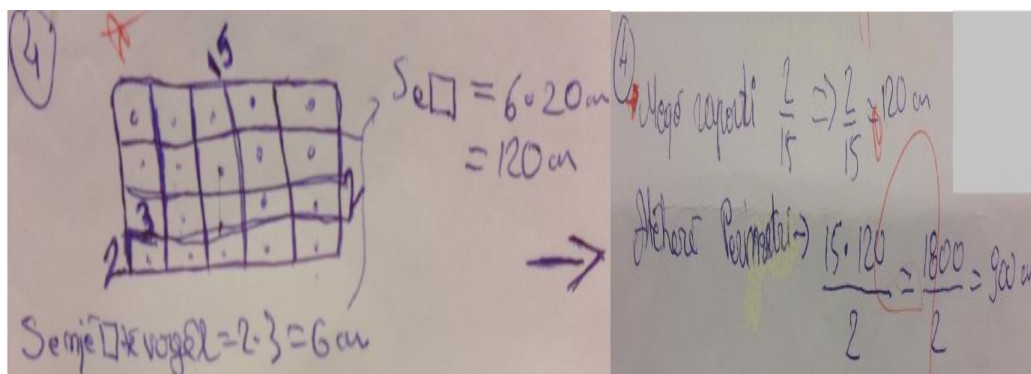 4
5
S e □ = 6·20 cm
= 120 cm
3
2
2
S e një □ të vogël = 2·3 = 6 cm
4
Nëgë raporti 2/15 ⇒ 2/15 = 120 cm
Atëherë Perimetri → 15·120/2 = 1800/2 = 900 cm